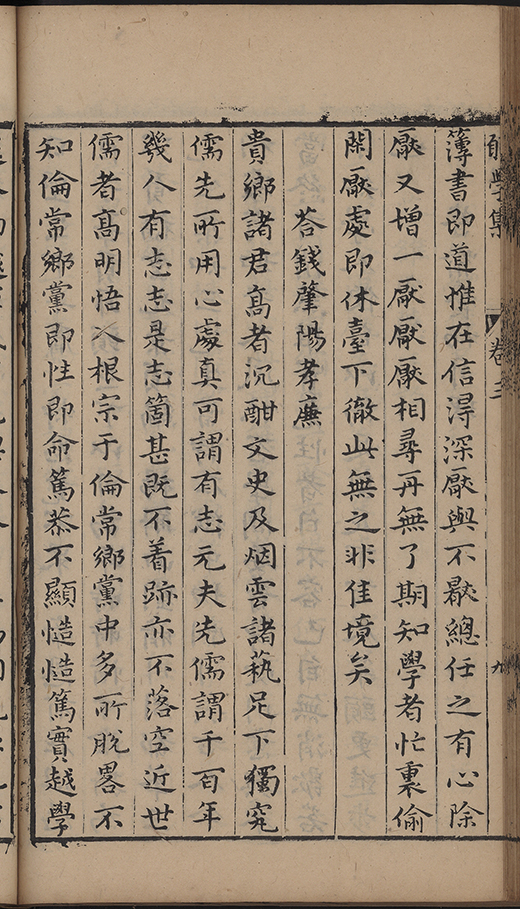 願學集
卷三
九
簿書即道惟在信得深厭與不厭總任之有心除
厭又增一厭厭厭相尋再無了期知學者忙裏偷
閑厭處即休臺下徹此無之非佳境矣
荅錢肇陽孝廉
貴鄉諸君高者沉酣文史及烟雲諸藝足下獨究
儒先所用心處真可謂有志元夫先儒謂千百年
幾人有志志是志箇甚既不着跡亦不落空近世
儒者高明悟入根宗于倫常鄉黨中多所脫畧不
知倫常鄉黨即性即命篤恭不顯慥慥篤實越學